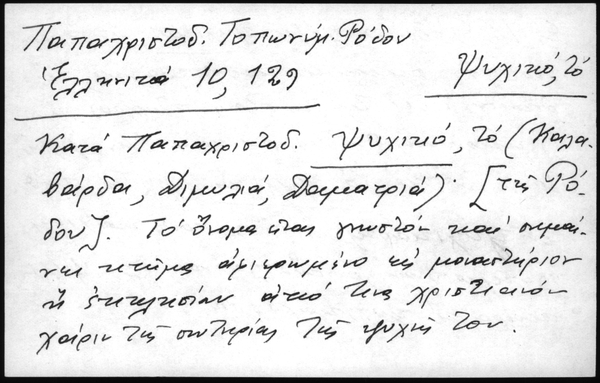 Παπαχριστοδ. Τοπωνύμ. Ρόδου
Ἑλληνικά 10, 129
Ψυχικό, τό
Κατά Παπαχριστοδ. Ψυχικό, τό (Καλα-
βάρδα, Διμυλιά, Δαματριά)· [τῆς Ρό-
δου]. Τό ὄνομα εἶναι γνωστόν καί σημαί-
νει κτῆμα ἀφιερωμένο εἰς μοναστήριον
ἤ ἐκκλησίαν ἀπό ἕνα χριστιανόν
χάριν τῆς σωτηρίας τῆς ψυχῆς του.